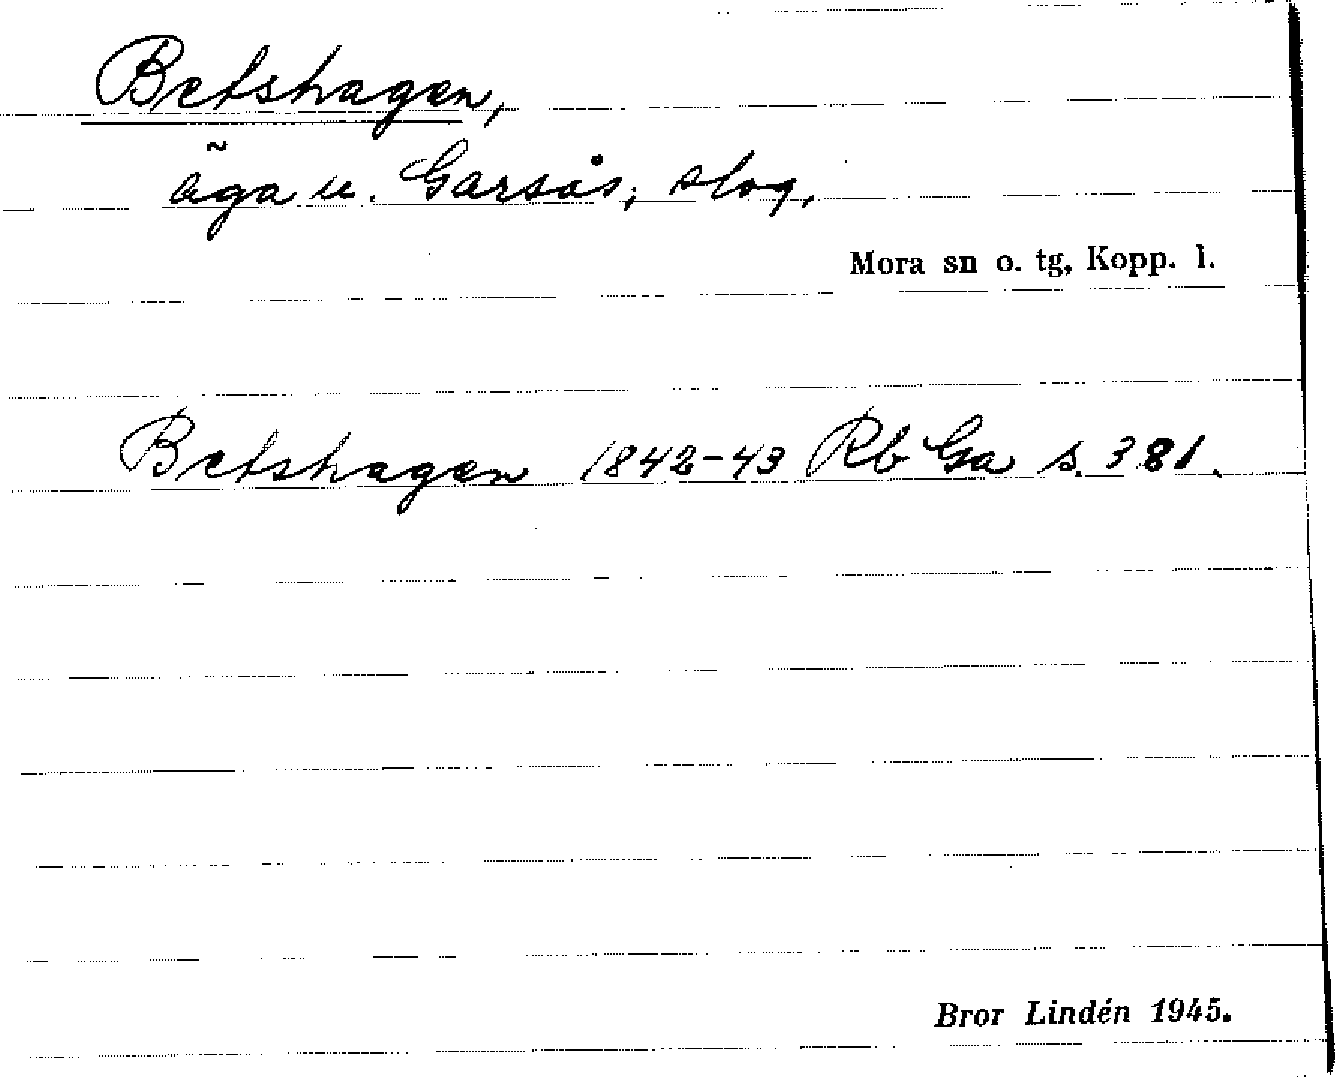 Betshagen,
äga u. Garsås; slog.
Mora sn o. tg, Kopp. l.
Betshagen 1842-43 Rb Ga s. 381.
Bror Lindén 1945.